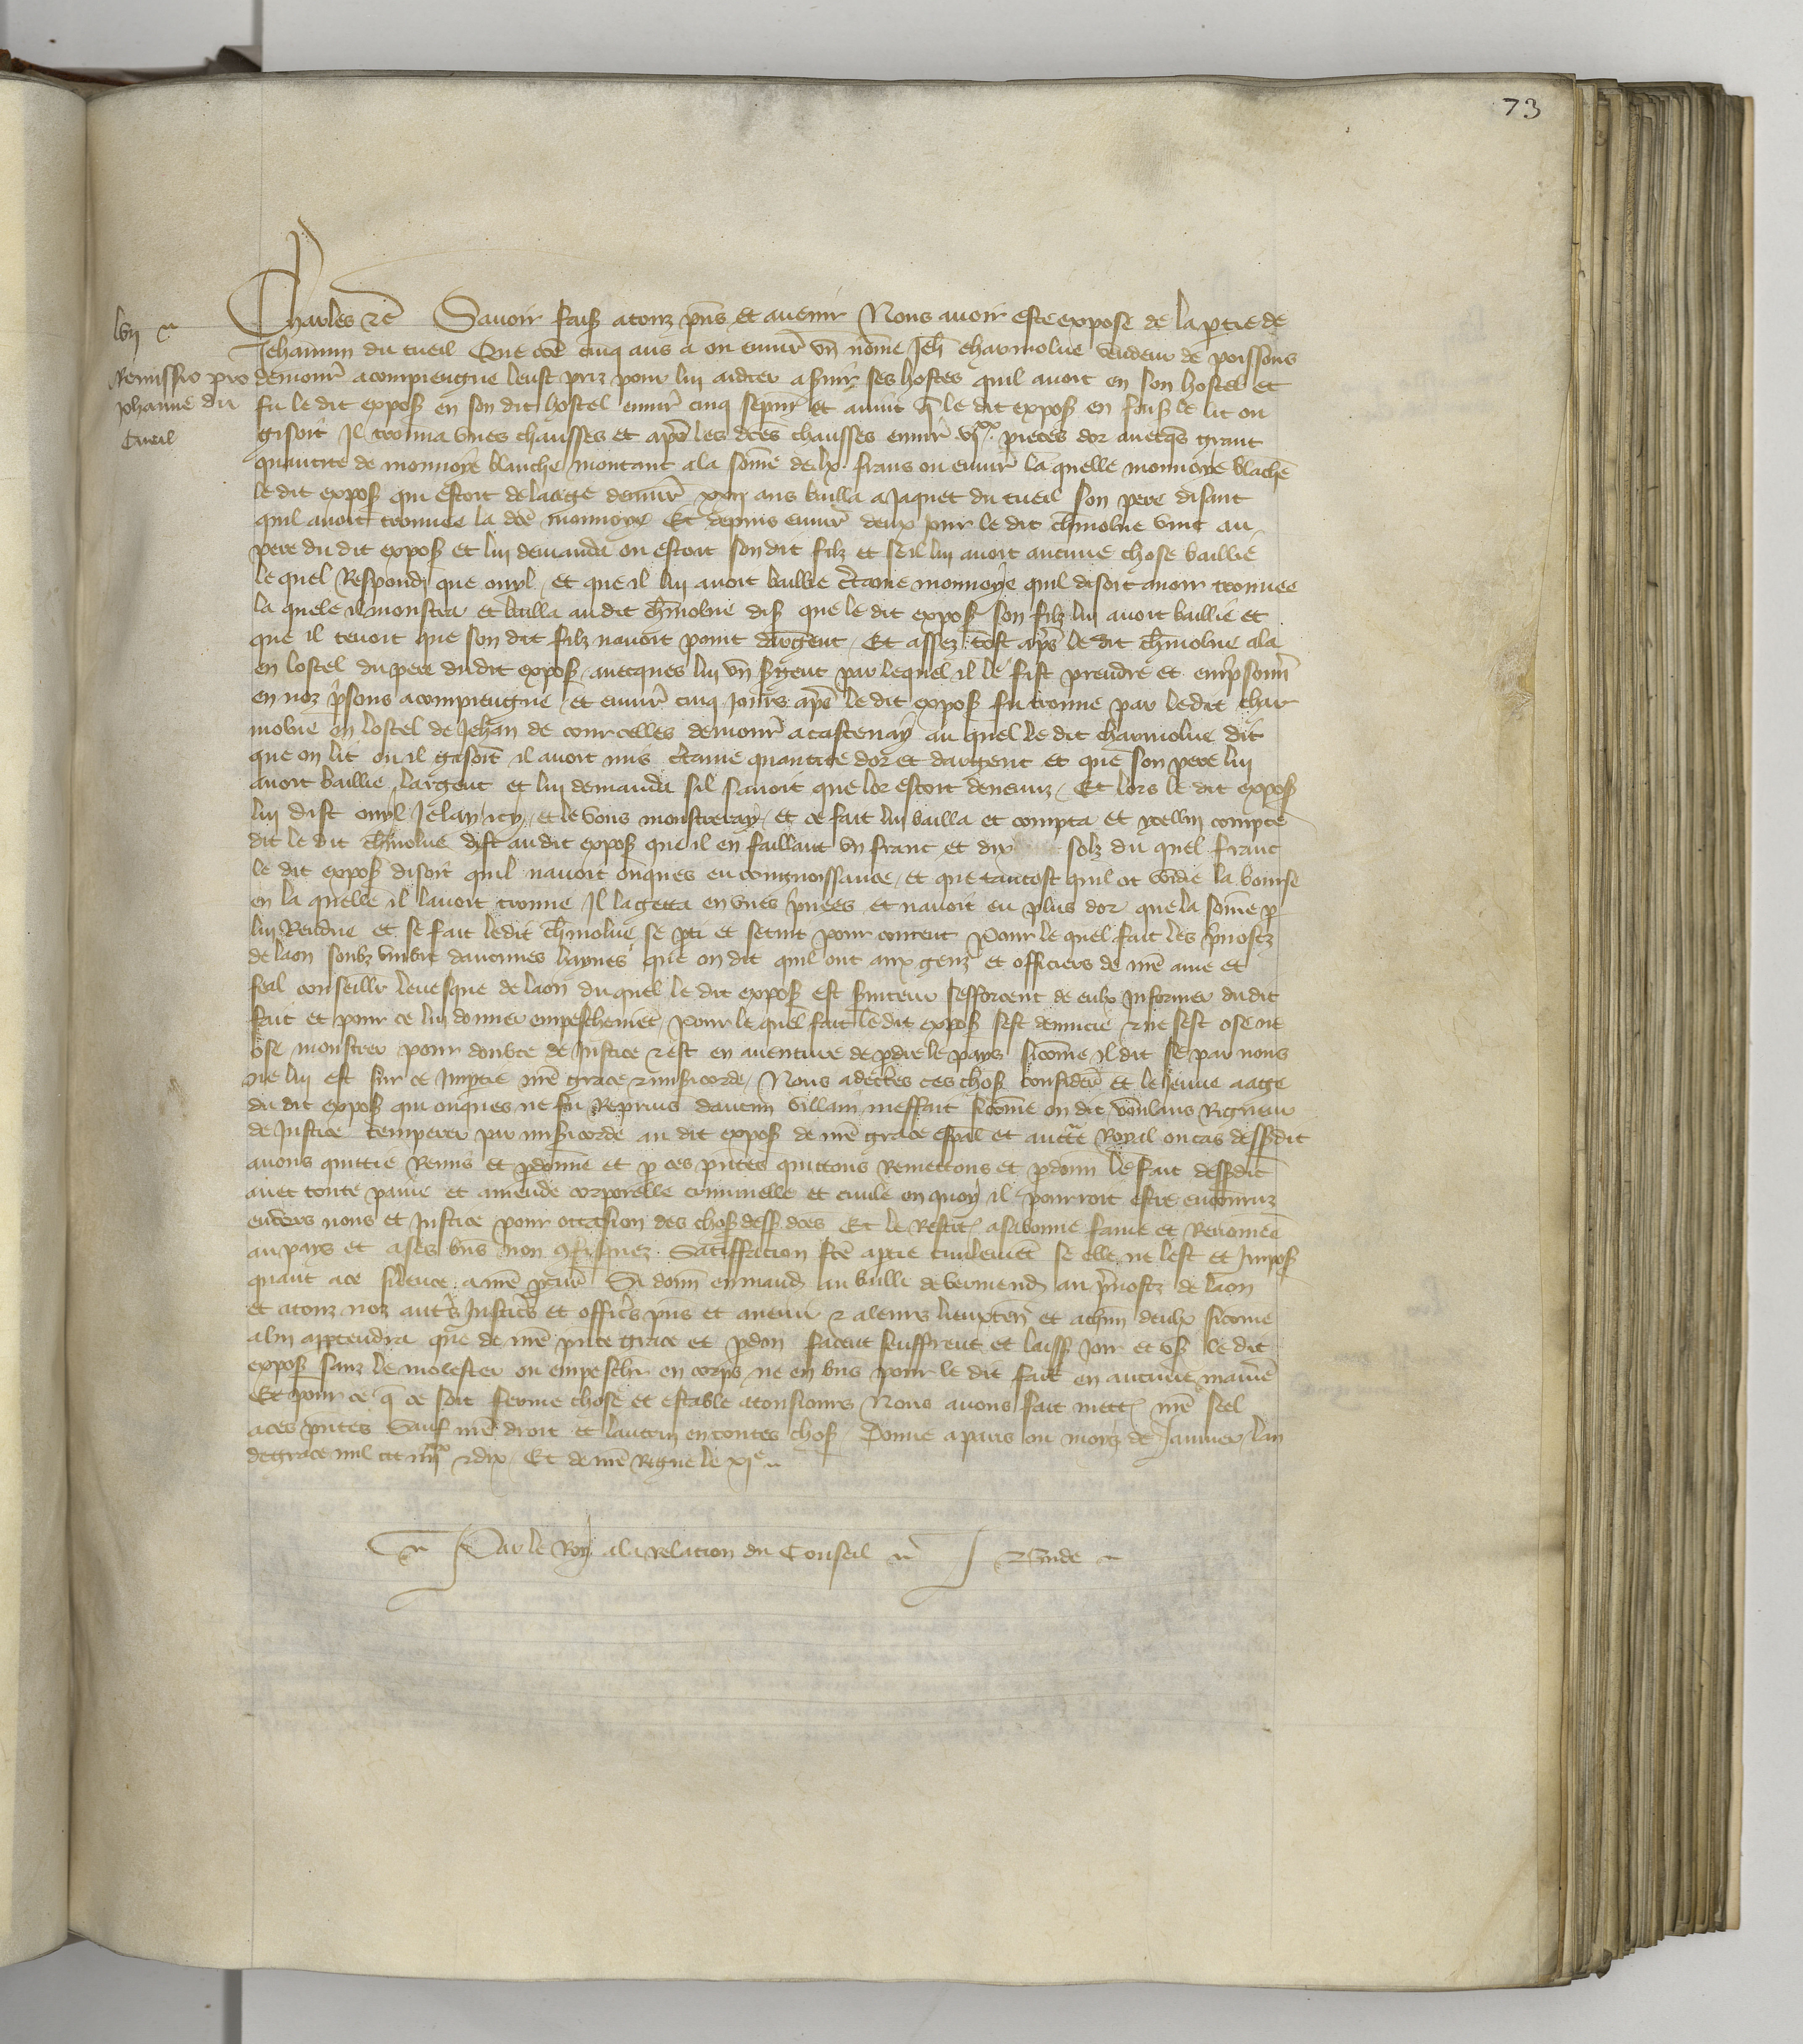 73
Charles etc Savoir faisons atouz pns et avenir Nous avoir este expose de la ptie de
lvii
Jehannin du tueil Que come cinq ans a ou envir un nome Jeh charmolue vendeur de poissons
Remissio pro
demour a compiengne leust priz pour lui aidier a suir ses hostes quil avoit en son hostel et
Johanne du
fu le dit expos en son dit hostel envir cinq sepm et avint q le dit expos en fais le lit ou
Tueil
gisoit Il trouva unes chausses et apres les dces chausses envir vixx pieces dor avecqs grant
quantite de monnoye blanche montant ala some de lx frans ou envir la quelle monnoye blache
le dit expos qui estoit de laage denvir xvii ans bailla a Jaquet du tueil son pere disant
quil avoit trouvee la dce monnoye Et depuis envir deux jour le dit chmolue vint au
pere du dit expos et lui demanda ou estoit son dit filz et seil lui avoit aucune chose baillie
le quel Respondi que ouyl et que il lui avoit baillie ctaine monnoye quil disoit avoir trouvee
la quele il monstra et bailla au dit chmolue dis que le dit expos son filz lui avoit baillie et
que il tenoit que son dit filz navoit point dargent Et assez tost aps le dit chmolue ala
en lostel du pere du dit expos avecques lui un sgent par lequel il le fist prendre et emprisonn
en noz prisons a compiengne et envir cinq jours aps le dit expos fu trouve par le dit char
molue en lostel de Jehan de courcelles demour a castenay au quel le dit charmolue dit
que ou lit ou il gisoit il avoit mis ctaine quantite dor et dargent et que son pere lui
avoit baillie largent et lui demanda sil savoit que lor estoit devenuz Et lors le dit expos
lui dist ouyl Je lay icy et le vous monstreray et ce fait lui bailla et compta et ycellui compte
dit le dit chmolue dist au dit expos que il en failloit un franc et dix solz du quel franc
le dit expos disoit quil navoit onques eu congnoissance et que tantost quil ot voidie la bourse
en la quelle il lavoit trouve Il la getta en unes pvees et navoit eu plus dor que la some p
lui Rendue et se fait le dit chmolue se pti et se tint pour content Pour le quel fait les pvostz
de laon soubz umbre daucunes haynes que on dit quil ont aux genz et officiers de nre ame et
feal conseillr levesque de laon du quel le dit expos est sviteur sefforcent de eulx informer du dit
fait et pour ce lui donner empeschemet Pour le quel fait le dit expos sest denucie et ne sest ose ne
ose monstrer pour doubte de Justice et est en aventure de pdre le pays sicome Il dit se par nous
ne lui est sur ce Imptie nre grace et misicorde Nous adectes ces chos consider et le Jeune aage
du dit expos qui onques ne fu Reprins daucun villain meffait sicome on dit voulans Rigueur
de Justice temperer par misicorde au dit expos de nre grace espal et auctte Royal ou cas dessdit
avons quittie Remis et pdonne et p ces pntes quittons Remettons et pdonn le fait dessdit
avec toute paine et amende corporelle criminelle et civile en quoy il pourroit estre encouruz
envers nous et Justice pour occasion des chos dess dces Et le Restit a sa bonne fame et Renomee
au pays et a ses bns non cofisquez Satiffacion fce aptie civilemet se elle ne lest et Impos
quant a ce silence a nre pcur Si donn en mand au bailli de vermend au pvost de laon
et atouz noz autrs Justics et offics pns et avenir et aleurs lieuxten et achun deulx sicome
alui apptendra que de nre pnte grace et pdon facent seuffrent et laiss Joir et us le dit
expos sanz le molester ou empeschr en corps ne en bns pour le dit fait en aucune maniē
Et pour ce q ce soit ferme chose et estable atousiours Nous avons fait mett nre seel
aces pntes Sauf nre droit et lautruy en toutes chos Donne a paris ou moys de Janvier lan
de grace mil ccc iiiixx et dix Et de nre Regne le xie
Par le Roy ala relacion du Conseil